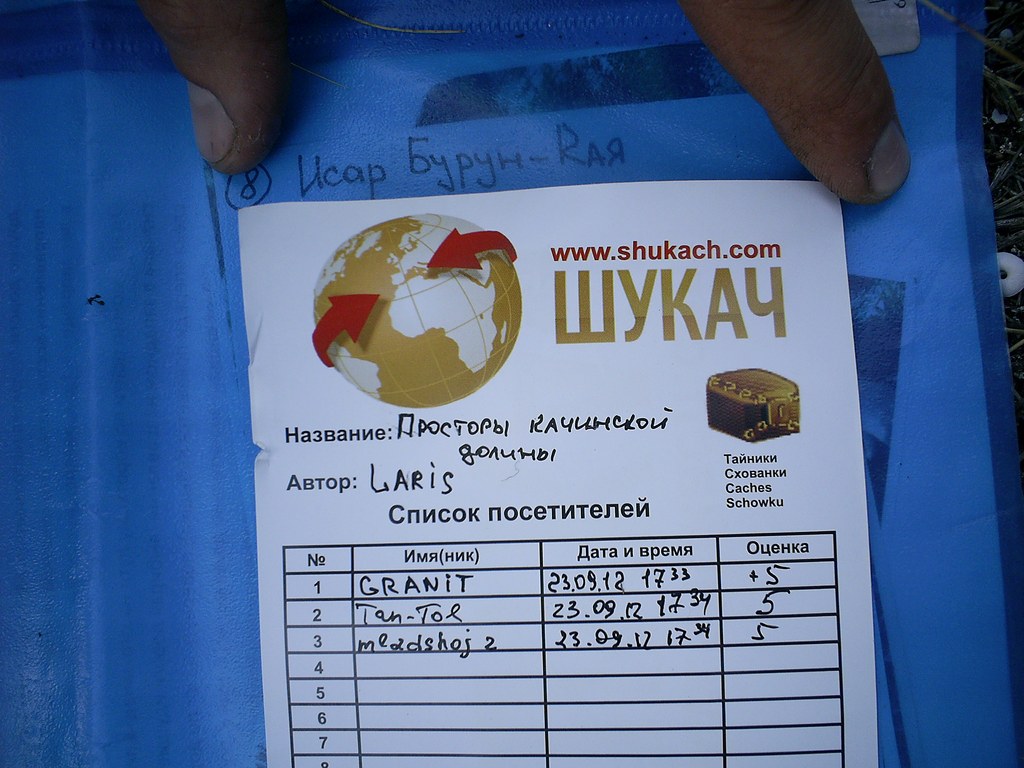 ⑧ Исар Бурун-Кая
www.shukach.com
ШУКАЧ
Название: Просторы качинской
долины
Тайники
Схованки
Caches
Schowku
Автор: LARiS
Список посетителей
№ Имя(ник) Дата и время Оценка
1 GRANiT 23.09.12 17 33 +5
2 Tan-Tol 23.09.12 17 34 5
3 mladshoj 2 23.09.12 17 34 5
4
5
6
7
8